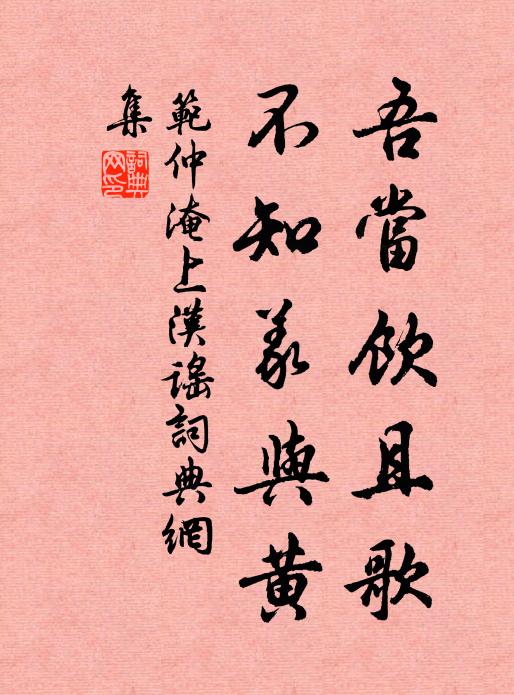 吾當飲且歌
不知羲與黃
範仲淹上漢謠詞典網
集
詞典
网印